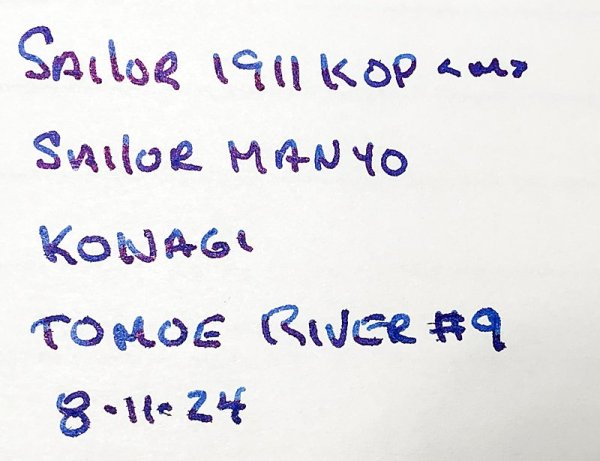 SAILOR 1911 KOP <M>
SAILOR MANYO
KONAGI
TOMOE RIVER #9
8-11-24